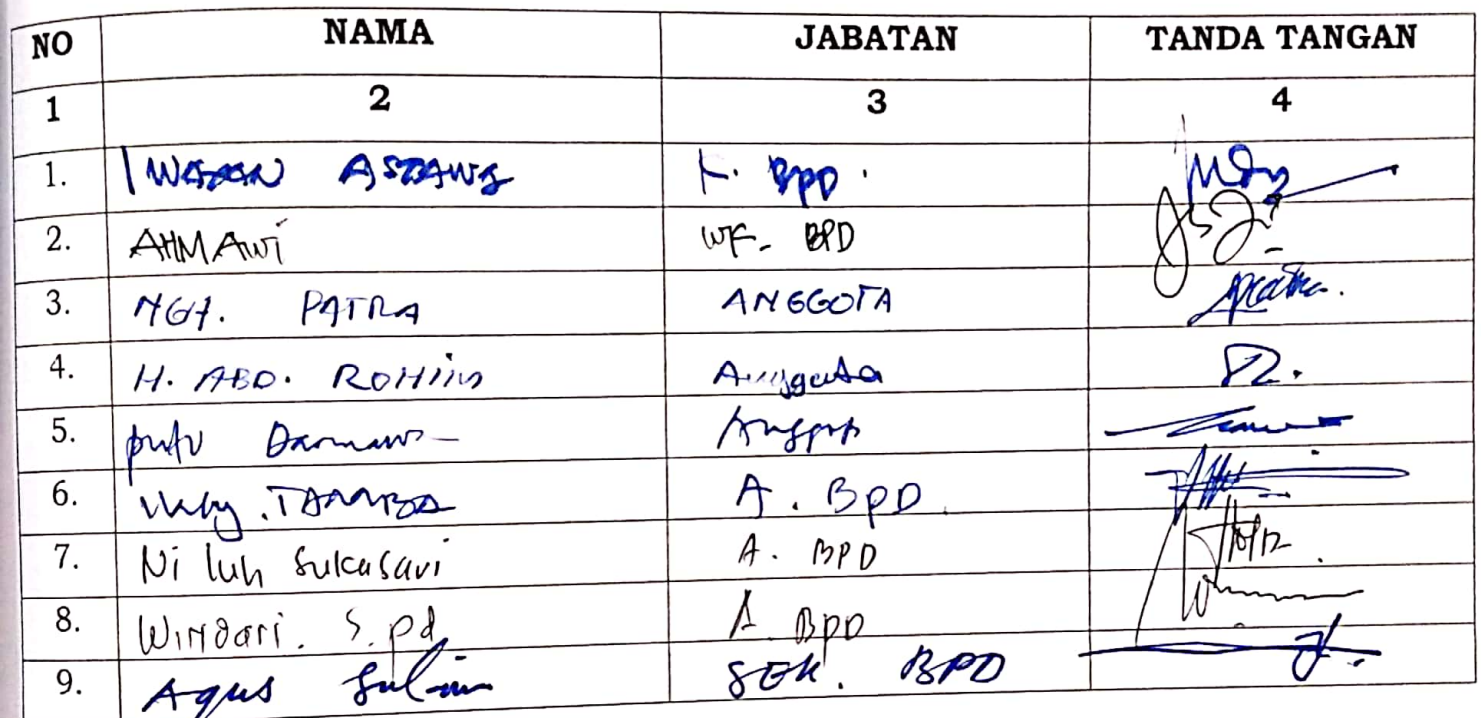 NO NAMA JABATAN TANDA TANGAN
1 2 3 4
1. I WAYAN ASTAWA K. BPD.
2. AHMAWi WK. BPD
3. NGH. PATRA ANGGOTA
4. H. ABD. ROHiM Anggota
5. putu Darmawa Anggota
6. TAMBA A. BPD
7. Ni luh Sukasari A. BPD
8. WiNdari. S.pd A. BPD
9. Agus SEK. BPD